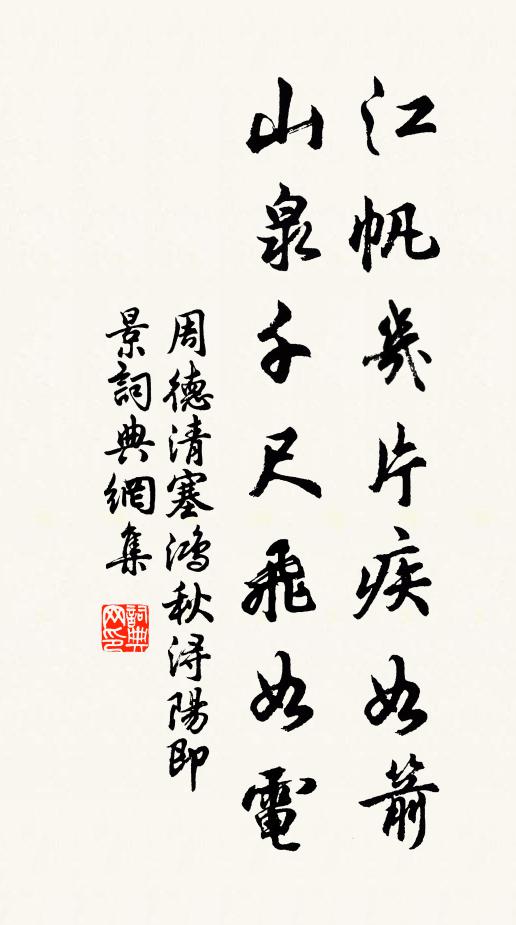 江帆幾片疾如箭
山泉千尺飛如電
周德清塞鴻秋潯陽即
景詞典網集
詞典
网印